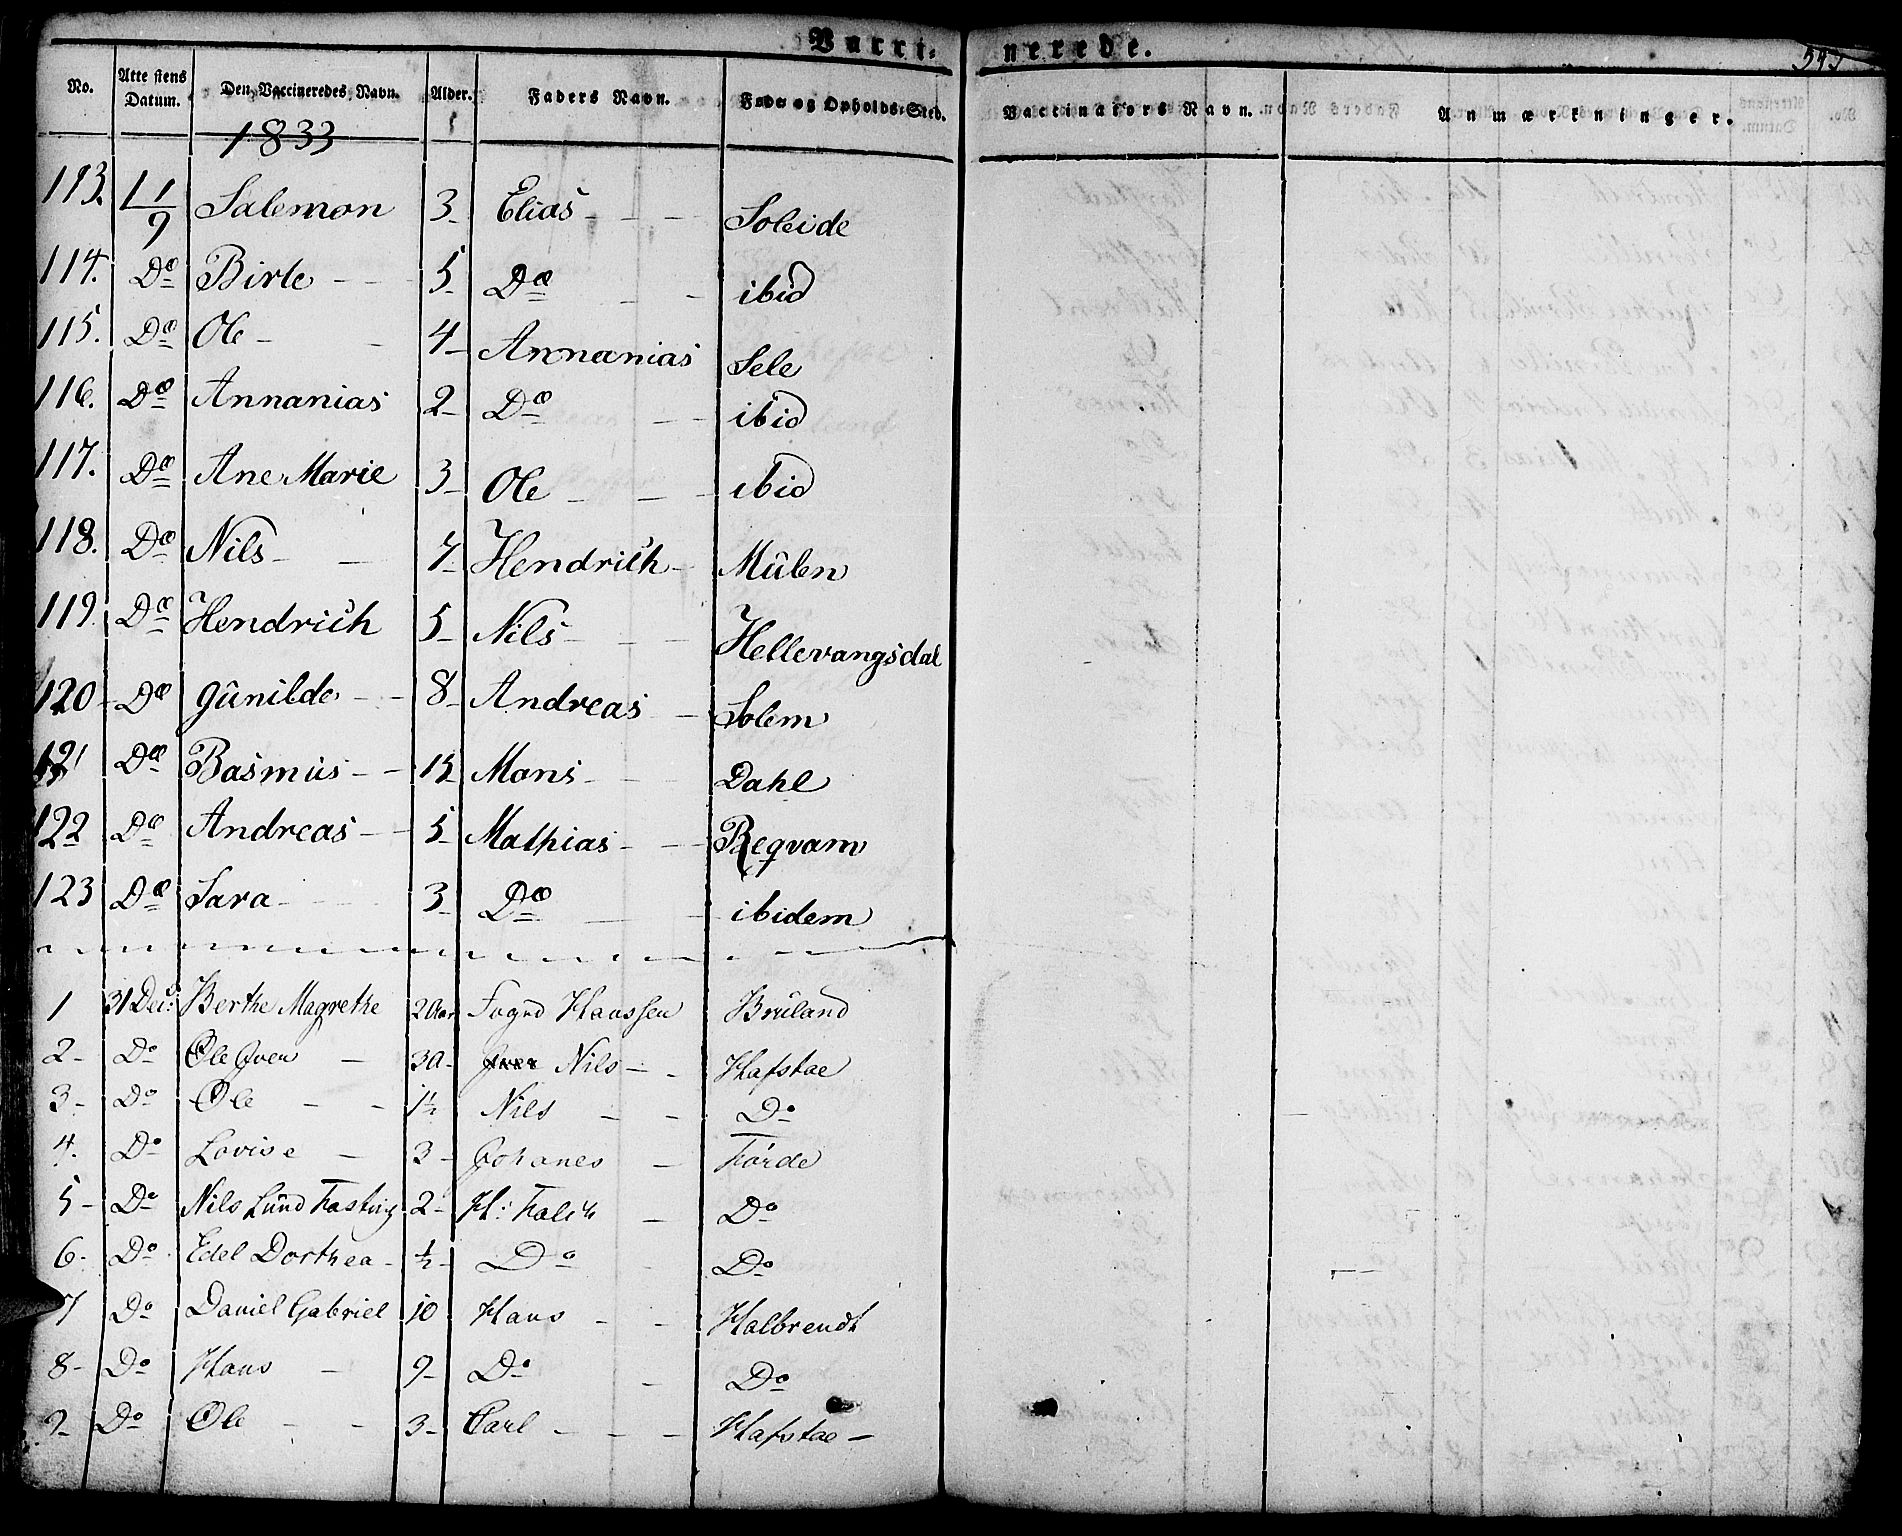 Vacci- nerede.
No. Atte stens Datum. Den Vaccineredes Navn. Alder. Faders Navn. Føde og Opholds-Sted. Vaccinatørs Navn. Anmærkninger.
1833
113. 11/9 Salemon 3 - Elias - - - Soleide
114. Do Birte - - 5 - Do - - ibid
115. Do Ole - - 4 - Annanias Sele
116. Do Annanias 2 - Do - - ibid
117. Do Ane Marie 3 - Ole - - - ibid
118. Do Nils - - 7 - Hendrich - Mûlen
119. Do Hendrich 5 - Nils - - - Hellevangsdal
120 - Do Gûnilde - - 8 - Andreas - Solem
121 Do Rasmus - - 15 Mons - - Dahl
122 Do Andreas - - 5 - Mathias - - - Reqvam
123 Do Sara - - 3 - Do - - ibidem
1 31 Dec: Berthe Magrethe 2 Aar Hanssen Brûland
2 - Do Ole Iver - 3 a - Iver Nils - - Hafstae
3 - Do Ole - - 1½ Nils - - Do
4. Do Lovise - 3 - Johanes - Förde
5 - Do Nils Lûnd Fasting 2 - H: Falch - Do
6 - Do Edel Dorthea - ½ - Do - Do
7 Do Daniel Gabriel 10 Hans - - Halbrendt
8 - Do Hans - 9 - Do - Do
9 - Do Ole - - 3 - Carl - - - Hafstae -